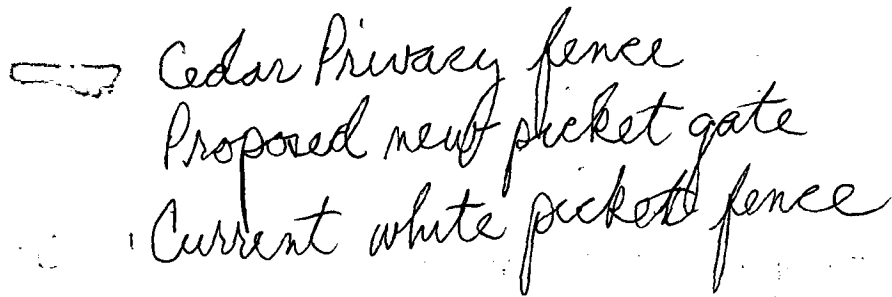 Cedar Privacy fence
Proposed new picket gate
Current white picket fence